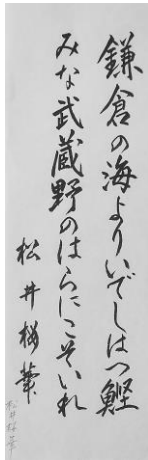 鎌倉の海よりいでしはつ鰹
みな武蔵野のはらにこそいれ
松井梅華
松井梅華